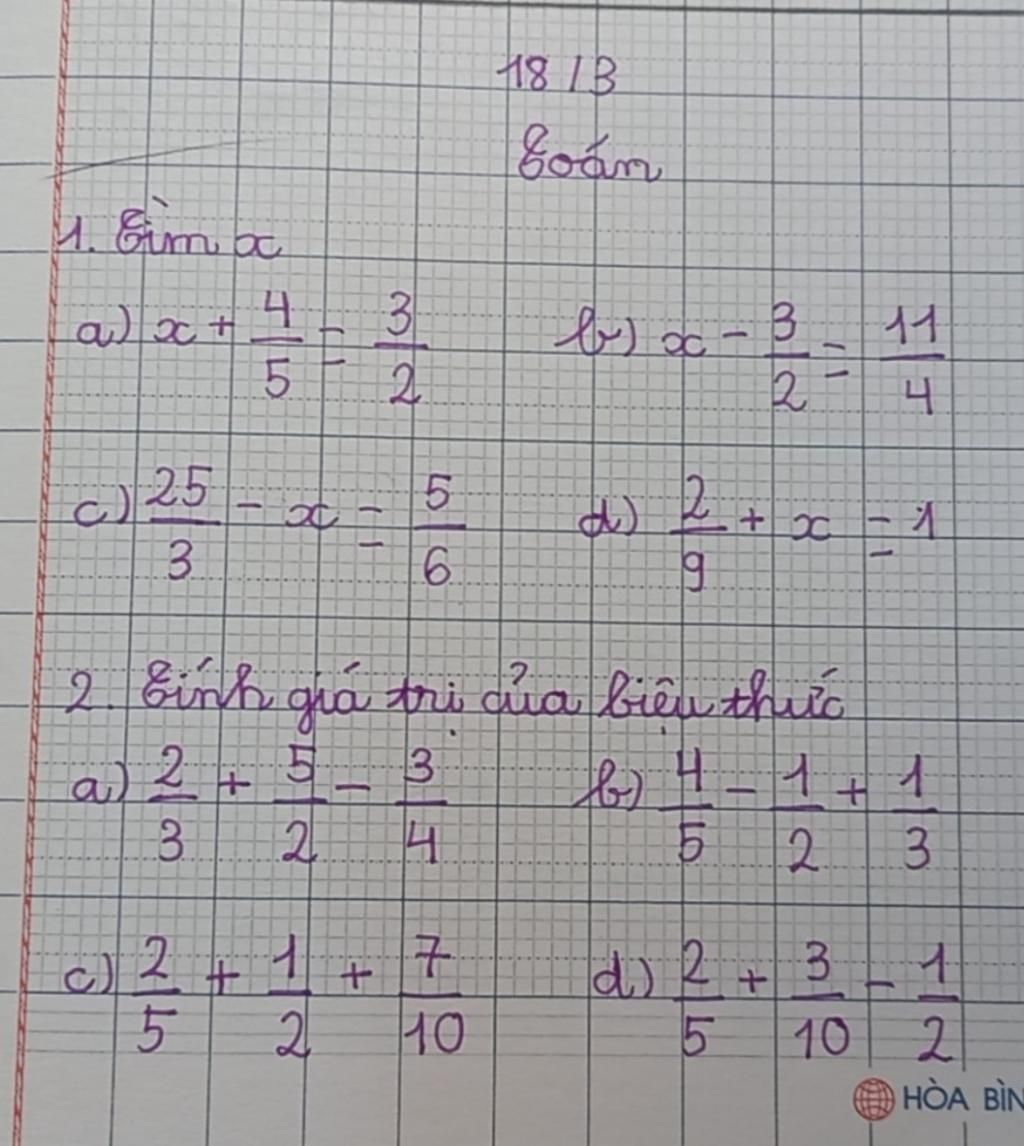 18/3
Toán
1. Tìm x
a) x + 4/5 = 3/2 b) x - 3/2 = 11/4
c) 25/3 - x = 5/6 d) 2/9 + x = 1
2. Tính giá trị của biểu thức
a) 2/3 + 5/2 - 3/4 b) 4/5 - 1/2 + 1/3
c) 2/5 + 1/2 + 7/10 d) 2/5 + 3/10 - 1/2
HÒA BÌN